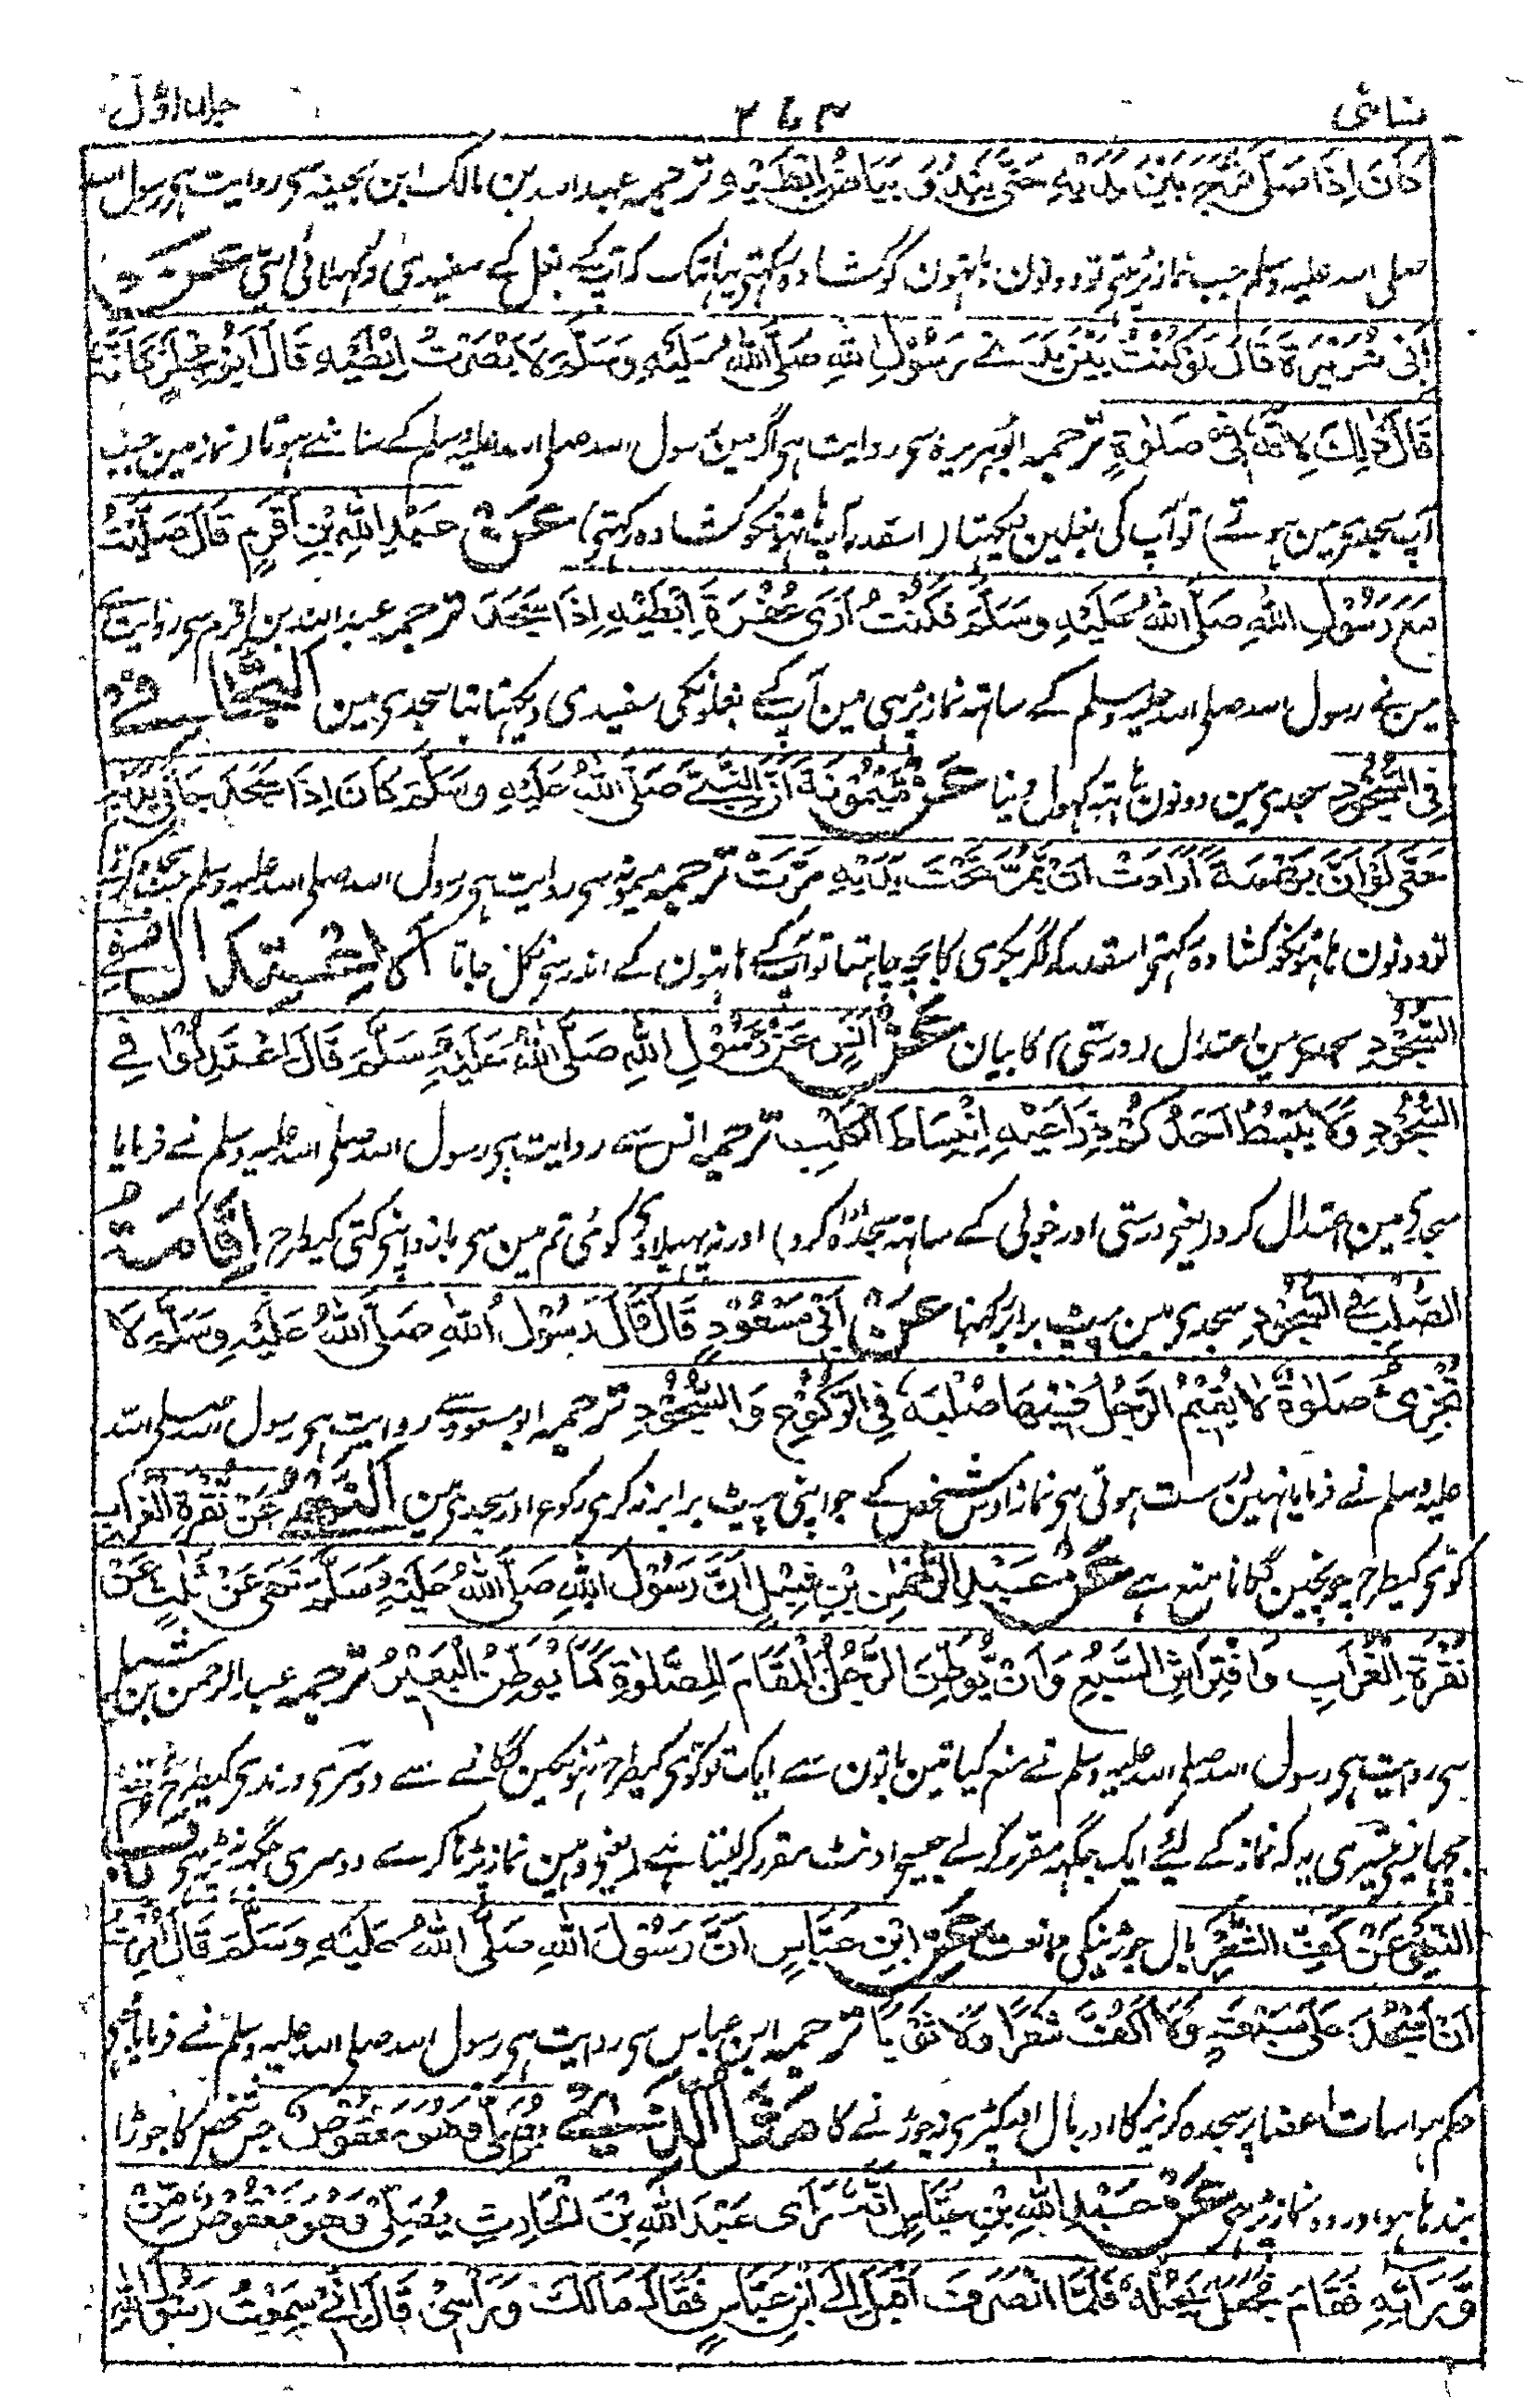 نسائی ۳۶۳ جلد اوّل
كَانَ اِذَا صَلّٰى فَرَّجَ بَيْنَ يَدَيْهِ حَتّٰى يَبْدُوَ بَيَاضُ اِبْطَيْهِ ترجمہ عبداللہ بن مالک ابن بحینہ سے روایت ہے رسول اللہ
صلی اللہ علیہ وسلم جب نماز پڑہتے تو دونون ہاتہون کو کشادہ رکہتے یہانتک کہ آپکے بغل کے سفیدی دکہلائی دیتی عَنْ
اَبِيْ هُرَيْرَةَ قَالَ لَوْ كُنْتُ بَيْنَ يَدَيْ رَسُوْلِ اللهِ صَلَّى اللهُ عَلَيْهِ وَسَلَّمَ لَاَبْصَرْتُ اِبْطَيْهِ قَالَ اَبُوْ مِجْلَزٍ كَاَنَّهٗ
قَالَ ذٰلِكَ لِاَنَّهٗ فِيْ صَلٰوةٍ ترجمہ ابوہریرہ سے روایت ہے اگر مین رسول اللہ صلی اللہ علیہ وسلم کے سامنے ہوتا (نماز مین جب
آپ سجدے مین ہوتے) تو آپ کی بغلین دیکہتا (اسقدر آپ ہاتہونکو کشادہ رکہتے) عَنْ عَبْدِ اللهِ بْنِ اَقْرَمَ قَالَ صَلَّيْتُ
مَعَ رَسُوْلِ اللهِ صَلَّى اللهُ عَلَيْهِ وَسَلَّمَ فَكُنْتُ اَرٰى عُفْرَةَ اِبْطَيْهِ اِذَا سَجَدَ ترجمہ عبداللہ بن اقرم سے روایت ہے
مین نے رسول اللہ صلی اللہ علیہ وسلم کے ساتہ نماز پڑہی مین آپکے بغلونکی سفیدی دیکہتا تہا سجدے مین اَلتَّجَافِيْ
فِي السُّجُوْدِ سجدے مین دونون ہاتہ کہول دینا عَنْ مَيْمُوْنَةَ اَنَّ النَّبِيَّ صَلَّى اللهُ عَلَيْهِ وَسَلَّمَ كَانَ اِذَا سَجَدَ جَافٰى يَدَيْهِ
حَتّٰى لَوْ اَنَّ بَهْمَةً اَرَادَتْ اَنْ تَمُرَّ تَحْتَ يَدَيْهِ مَرَّتْ ترجمہ میمونہ سے روایت ہے رسول اللہ صلی اللہ علیہ وسلم جب سجدہ کرتے
تو دونون ہاتہونکو کشادہ رکہتے اسقدر کہ اگر بکری کا بچہ چاہتا تو آپکے ہاتہون کے اندر سے نکل جاتا اَلْاِعْتِدَالُ فِي
السُّجُوْدِ سجدے مین اعتدال (درستی) کا بیان عَنْ اَنَسٍ عَنْ رَسُوْلِ اللهِ صَلَّى اللهُ عَلَيْهِ وَسَلَّمَ قَالَ اِعْتَدِلُوْا فِي
السُّجُوْدِ وَلَا يَبْسُطْ اَحَدُكُمْ ذِرَاعَيْهِ اِنْبِسَاطَ الْكَلْبِ ترجمہ انس سے روایت ہے رسول اللہ صلی اللہ علیہ وسلم نے فرمایا
سجدے مین اعتدال کرو (یعنی درستی اور خوبی کے ساتہ سجدہ ادا کرو) اور نہ پہیلاوے کوئی تم مین سے بازو اپنے کتے کیطرح اِقَامَةُ
الصُّلْبِ فِي السُّجُوْدِ سجدے مین پیٹ برابر رکہنا عَنْ اَبِيْ مَسْعُوْدٍ قَالَ قَالَ رَسُوْلُ اللهِ صَلَّى اللهُ عَلَيْهِ وَسَلَّمَ لَا
تُجْزِئُ صَلٰوةٌ لَا يُقِيْمُ الرَّجُلُ فِيْهَا صُلْبَهٗ فِي الرُّكُوْعِ وَالسُّجُوْدِ ترجمہ ابو مسعود سے روایت ہے رسول اللہ صلی اللہ
علیہ وسلم نے فرمایا نہین درست ہوتی ہے نماز اوس شخص کے جو اپنی پیٹ برابر نہ کرے رکوع اور سجدے مین اَلنَّهْيُ عَنْ نُقْرَةِ الْغُرَابِ
کوے کیطرح چونچین لگانا منع ہے عَنْ عَبْدِ الرَّحْمٰنِ بْنِ شِبْلٍ اَنَّ رَسُوْلَ اللهِ صَلَّى اللهُ عَلَيْهِ وَسَلَّمَ نَهٰى عَنْ ثَلٰثٍ عَنْ
نُقْرَةِ الْغُرَابِ وَافْتِرَاشِ السَّبُعِ وَاَنْ يُّوَطِّنَ الرَّجُلُ الْمَقَامَ لِلصَّلٰوةِ كَمَا يُوَطِّنُ الْبَعِيْرُ ترجمہ عبدالرحمن بن شبل
سے روایت ہے رسول اللہ صلی اللہ علیہ وسلم نے منع کیا تین باتون سے ایک تو کوے کیطرح ٹہونگین لگانے سے دوسری درندے کیطرح ہاتہ
بچہانے سے تیسری یہ کہ نماز کے لئے ایک جگہ مقرر کرلے جیسے اونٹ مقرر کرلیتا ہے (یعنی وہین نماز پڑہا کرے دوسری جگہ نہ پڑہے) بَابُ
النَّهْيِ عَنْ كَفِّ الشَّعْرِ بال جوڑنیکی ممانعت عَنْ ابْنِ عَبَّاسٍ اَنَّ رَسُوْلَ اللهِ صَلَّى اللهُ عَلَيْهِ وَسَلَّمَ قَالَ اُمِرْتُ
اَنْ اَسْجُدَ عَلٰى سَبْعَةٍ وَلَا اَكُفَّ شَعْرًا وَلَا ثَوْبًا ترجمہ ابن عباس سے روایت ہے رسول اللہ صلی اللہ علیہ وسلم نے فرمایا مجہے
حکم ہوا سات اعضا پر سجدہ کرنیکا اور بال اور کپڑے نہ جوڑنے کا مَثَلُ الَّذِيْ يُصَلِّيْ وَهُوَ مَعْقُوْصٌ جس شخص کا جوڑا
بندہا ہو اور وہ نماز پڑہے عَنْ عَبْدِ اللهِ بْنِ عَبَّاسٍ اَنَّهٗ رَاٰى عَبْدَ اللهِ بْنَ الْحَارِثِ يُصَلِّيْ وَهُوَ مَعْقُوْصٌ مِنْ
وَّرَائِهٖ فَقَامَ فَجَعَلَ يَحُلُّهٗ فَلَمَّا انْصَرَفَ اَقْبَلَ اِلٰى ابْنِ عَبَّاسٍ فَقَالَ مَا لَكَ وَرَاْسِيْ قَالَ اِنِّيْ سَمِعْتُ رَسُوْلَ اللهِ